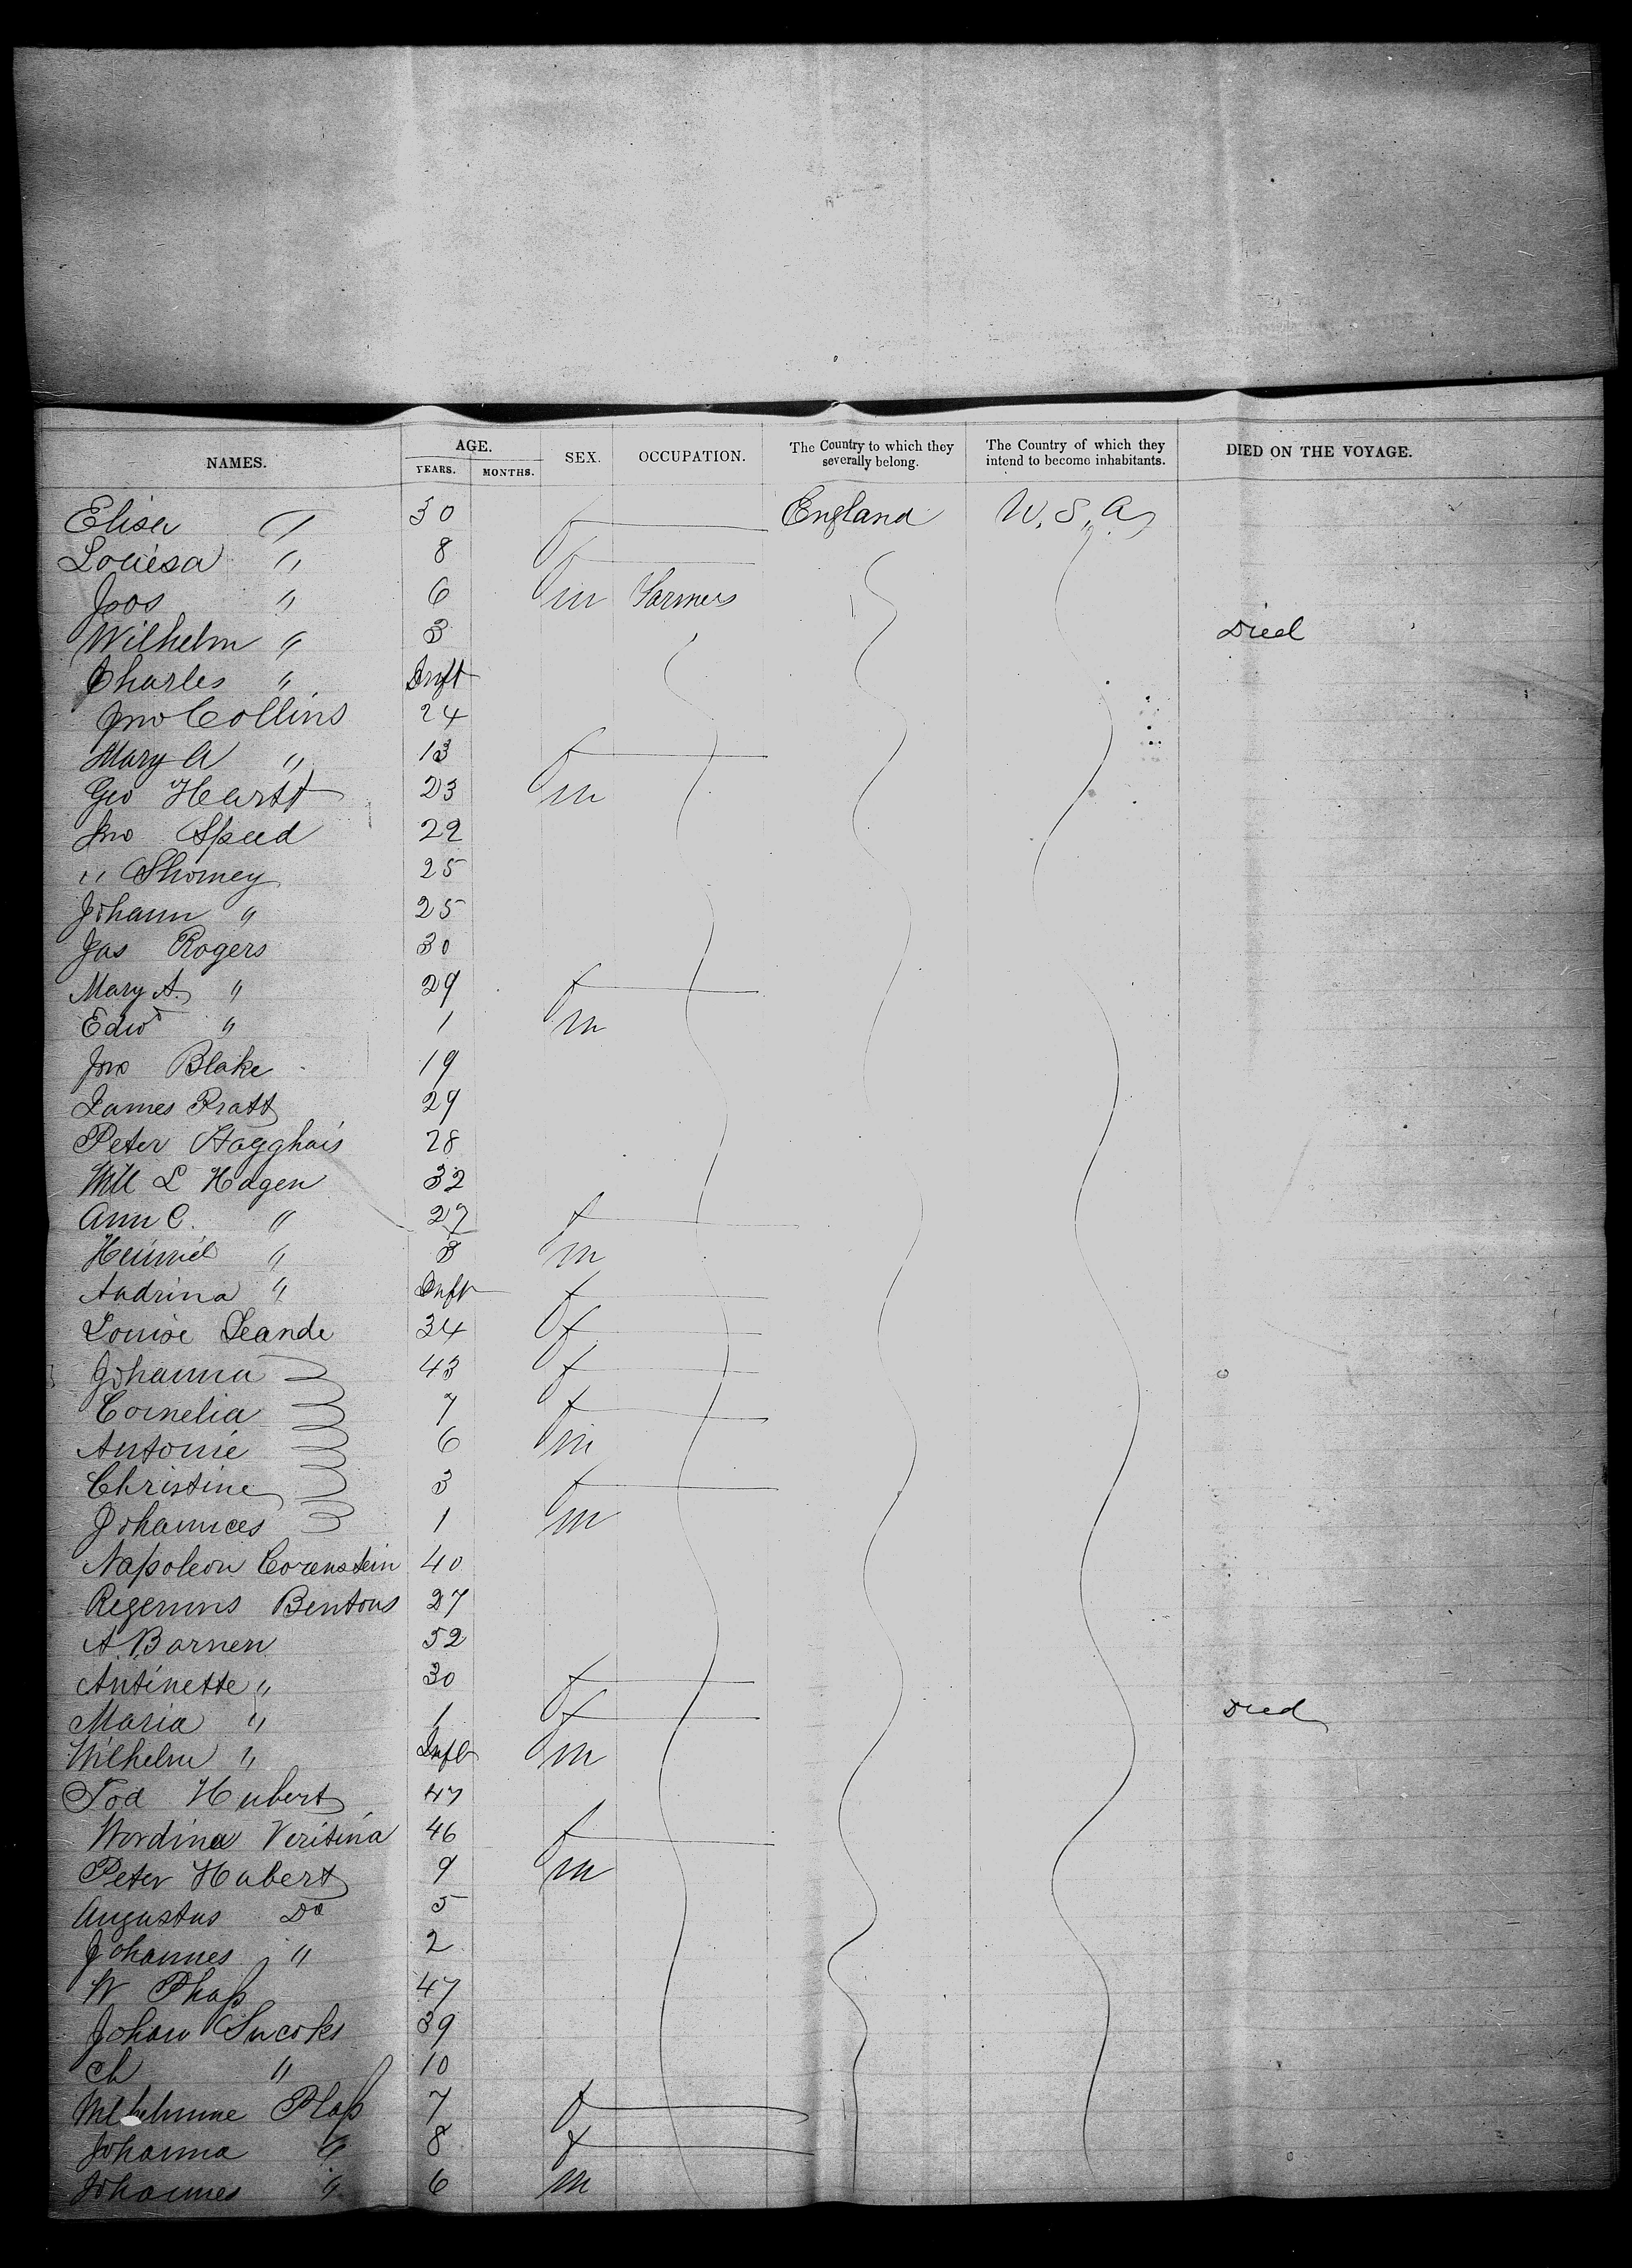 NAMES. AGE. YEARS. MONTHS. SEX. OCCUPATION. The Country to which they severally belong. The Country of which they intend to become inhabitants. DIED ON THE VOYAGE.
Elisa " 30 f England U.S.A
Louisa " 8 f
Jos " 6 m Farmers
Wilhelm " 3 Died
Charles " Inft
Jno Collins 24
Mary A " 13 f
Geo Hearst 23 m
Jno Speed 22
" Shomey 25
Johann " 25
Jas Rogers 30
Mary A. " 29 f
Edwd " 1 m
Jno Blake 19
James Pratt 29
Peter Hagghais 28
Will L Hagen 32
Ann C. " 27 f
" 3 m
Andrina " Inft f
Louise Leande 34 f
Johanna 43 f
Cornelia 7 f
Antonie 6 m
Christine 3 f
Johannces 1 m
Napoleon Corenstein 40
Bentous 27
A. Barnen 52
Antinette " 30 f
Maria " 1 f Died
Wilhelm " Inft m
Tod Hubert 47
Wordina Veritina 46 f
Peter Hubert 9 m
Augustus Do 5
Johannes " 2
W Phaß 47
Johan 39
Ch " 10
Wilhelmine Plaß 7 f
Johanna " 8 f
Johannes " 6 m